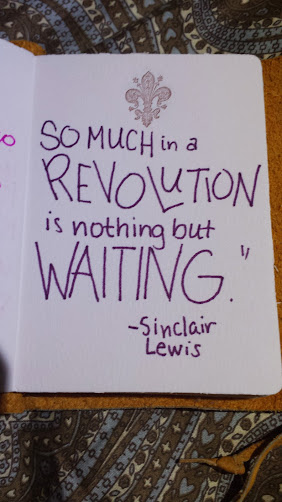 SO MUCH in a
REVOLUTION
is nothing but
WAITING."
-Sinclair
Lewis